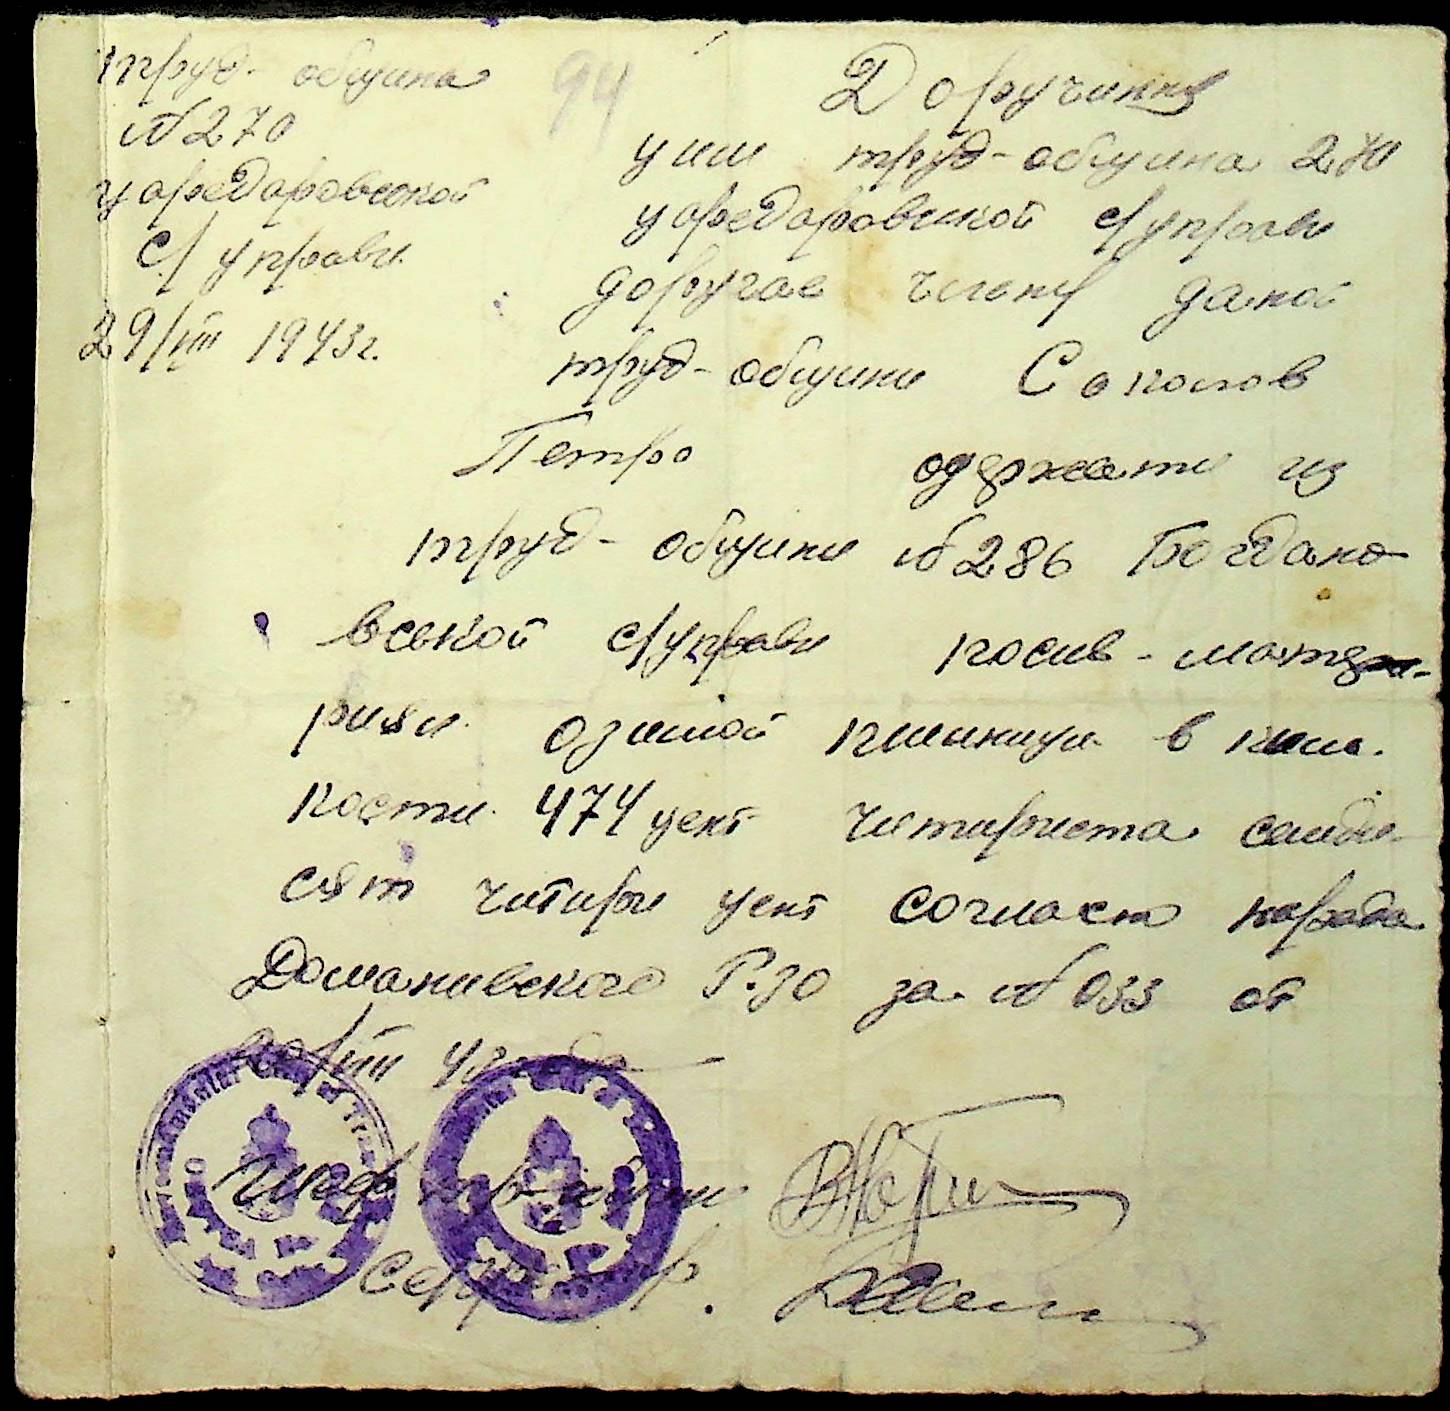 труд-община
№ 270
уоредаровской
с/управи
29/VIII 1943 г.
94
Доручиння
цим труд-община 270
уоредаровской с/управи
доручае члену даной
труд-общини Соколов
Петро одержати из
труд-общини № 286 Богдано-
вськой с/управи посив-мате-
риял озимой пшиници в кили-
кости 474 цент читириста симде-
сят читири цент согласно наряда
Доманивского Р.ЗО за № 033 от
Шеф тр-общини
Секретар.